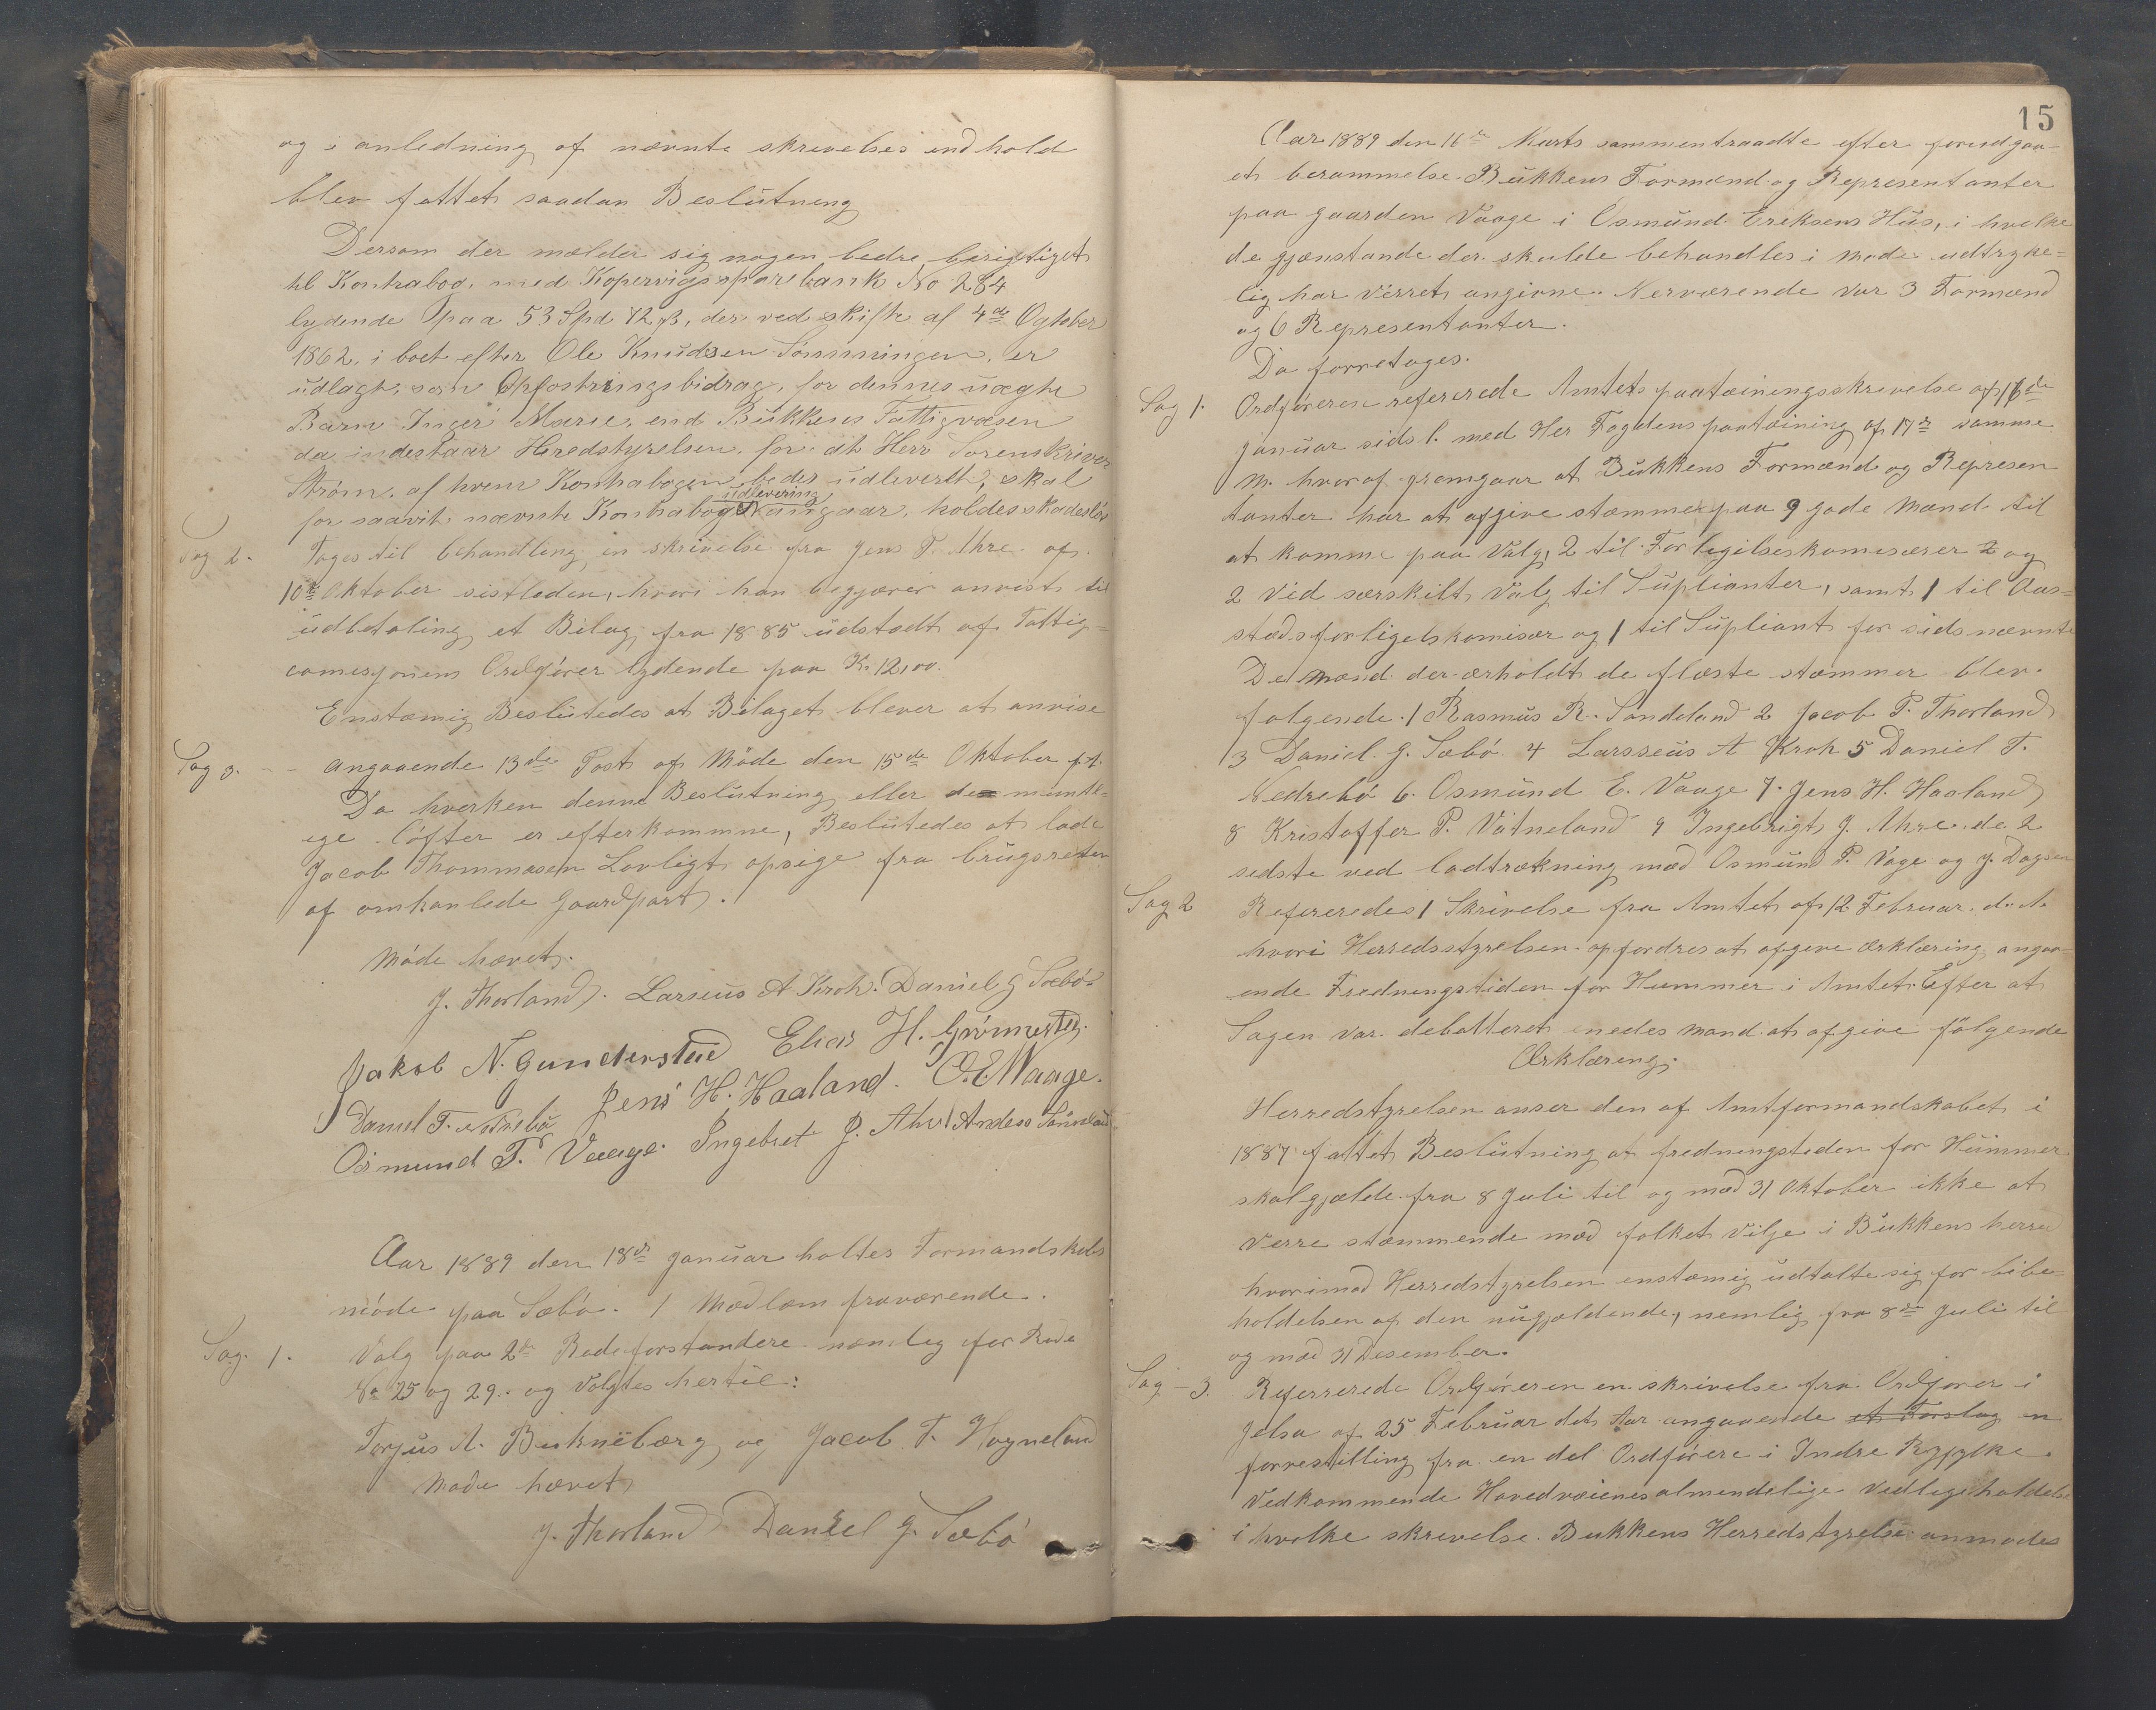 og i anledning af nævnte skrivelses indhold
blev fattet saadan Beslutning
Dersom der mælder sig nogen bedre berigtiget
til Kontrabog, med Kopervigs sparbank No 284
lydende paa 53 Spd 72 β, der ved skifte af 4de Ogtober
1862, i boet efter Ole Knudsen Sønmningen, er
udlagt, som Opfostringsbidrag, for dennes uægte
Barn Inger Marie, end Bukkens Fattigvæsen
da indestaar Heredstyrelsen for at Herr Sorenskriver
Strøm, af hvem Kontrabogen bedes udleverdt, skal
udlevering
for saavit nævnte Kontrabogs angaar, holdes skadesløs
Sag 2. Toges til behandling en skrivelse fra Jens T. Ahre af
10de Oktober sistleden, hvori han begjærer anvist til
udbetaling et Bilag fra 1885 udstædt af Fattig=
comesjonens Ordfører lydende paa Kr. 12,00.
Enstæmig Beslutedes at Bilaget blever at anvise
Sag 3. -- angaaende 13de Post af Møde den 15de Oktober f.A.
Da hverken denne Beslutning eller de muntl=
ege løfter er efterkommne, Beslutedes at lade
Jacob Thommasen Lovligt opsige fra brugsreten
af omhanlede Gaardpart.
Møde hævet.
J. Thorland. Larseus A Krok. Daniel G Sæbø
Jakob N. Gunderstad Elias H. Grønnestad.
Daniel T. Nedrebø Jens H. Haaland. O. E. Waage.
Osmund T. Vaage. Ingebret J. Ahre Andeas Sønneland
Aar 1889 den 18de Januar holtes Formandskabs
møde paa Sæbø. 1 Medlæm fraværende.
Sag. 1. Valg paa 2de Rodeforstandere nemlig for Rode
No 25 og 29. og Valgtes hertil:
Torjus A. Buknebærg og Jacob T. Hogneland
Møde hævet
J. Thorland Daniel G. Sæbø
15
Aar 1889 den 16de Marts sammentraadte efter forudgaa-
et berammelse Bukkens Formænd og Representanter
paa gaarden Vaage i Osmund Eriksens Hus, i hvilke
de gjænstande der skulde behandles i møde udtryke=
lig har verret angivne. Nerværende var 3 Formænd
og 6 Representanter.
Da forretoges.
Sag 1. Ordføreren refererede Amtets paatæiningsskrivelse af 16de
januar sids l. med Her Fogdens paatæining af 17de samme
M. hvoraf fremgaar at Bukkens Formænd og Represen
tanter har at afgive stæmmer paa 9 gode Mænd til
at komme paa Valg, 2 til Forligilseskomisærer 2 og
2 Ved særskilt Valg til Suplianter, samt 1 til Aas=
stædsforligelskomisær og 1 til Supliant for sidsnævnte
De Mænd der ærholdt de flæste stæmmer blev.
følgende. 1 Rasmus R. Sandeland 2 Jacob P. Thorland
3 Daniel G. Sæbø 4 Larsseus A Krok 5 Daniel T.
Nedrebø 6. Osmund E. Vaage 7. Jens H. Haaland
8 Kristoffer P. Vatneland 9 Ingebrigt J. Ahre. de 2
sedste ved lodtrækning med Osmund T. Vage og J. Dagsen
Sag 2 Refereredes 1 Skrivelse fra Amtet af 12 Februar. d. A.
hvori Herredsstyrelsen opfordres at afgive ærklæring angaa-
ende Fredningstiden for Hummer i Amtet. Efter at
Sagen var debatteret enedes mand at afgive følgende
Ærklæreng.
Herredstyrelsen anser den af Amtformandskabet i
1887 fattet Beslutning at fredningsteden for Hummer
skal gjælde fra 8 Juli til og med 31 Oktober ikke at
Verre stæmmende med folket Vilje i Bukkens herred
hvorimod Herredstyrelsen enstæmig udtalte sig for bibe-
holdelsen af den nugjældende, nemlig fra 8de Juli til
og med 31 Desember.
Sag - 3. Refererede Ordføreren en skrivelse fra Ordfører i
Jelsa af 25 Februar dets Aar angaaende et Forslag en
forrestilling fra en del Ordførere i Indre Ryfylke
Vedkommende Hovedveienes almendelige Vedlige holdelse
i hvilke skrevelse Bukkens Herredstyrelse anmodes